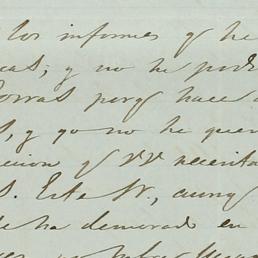 los informes q he
cas; y no he pod
Porras porq hace
s, y yo no he quer
cion q VV necesita
s. Este Sr., aunq
le ha demorado en